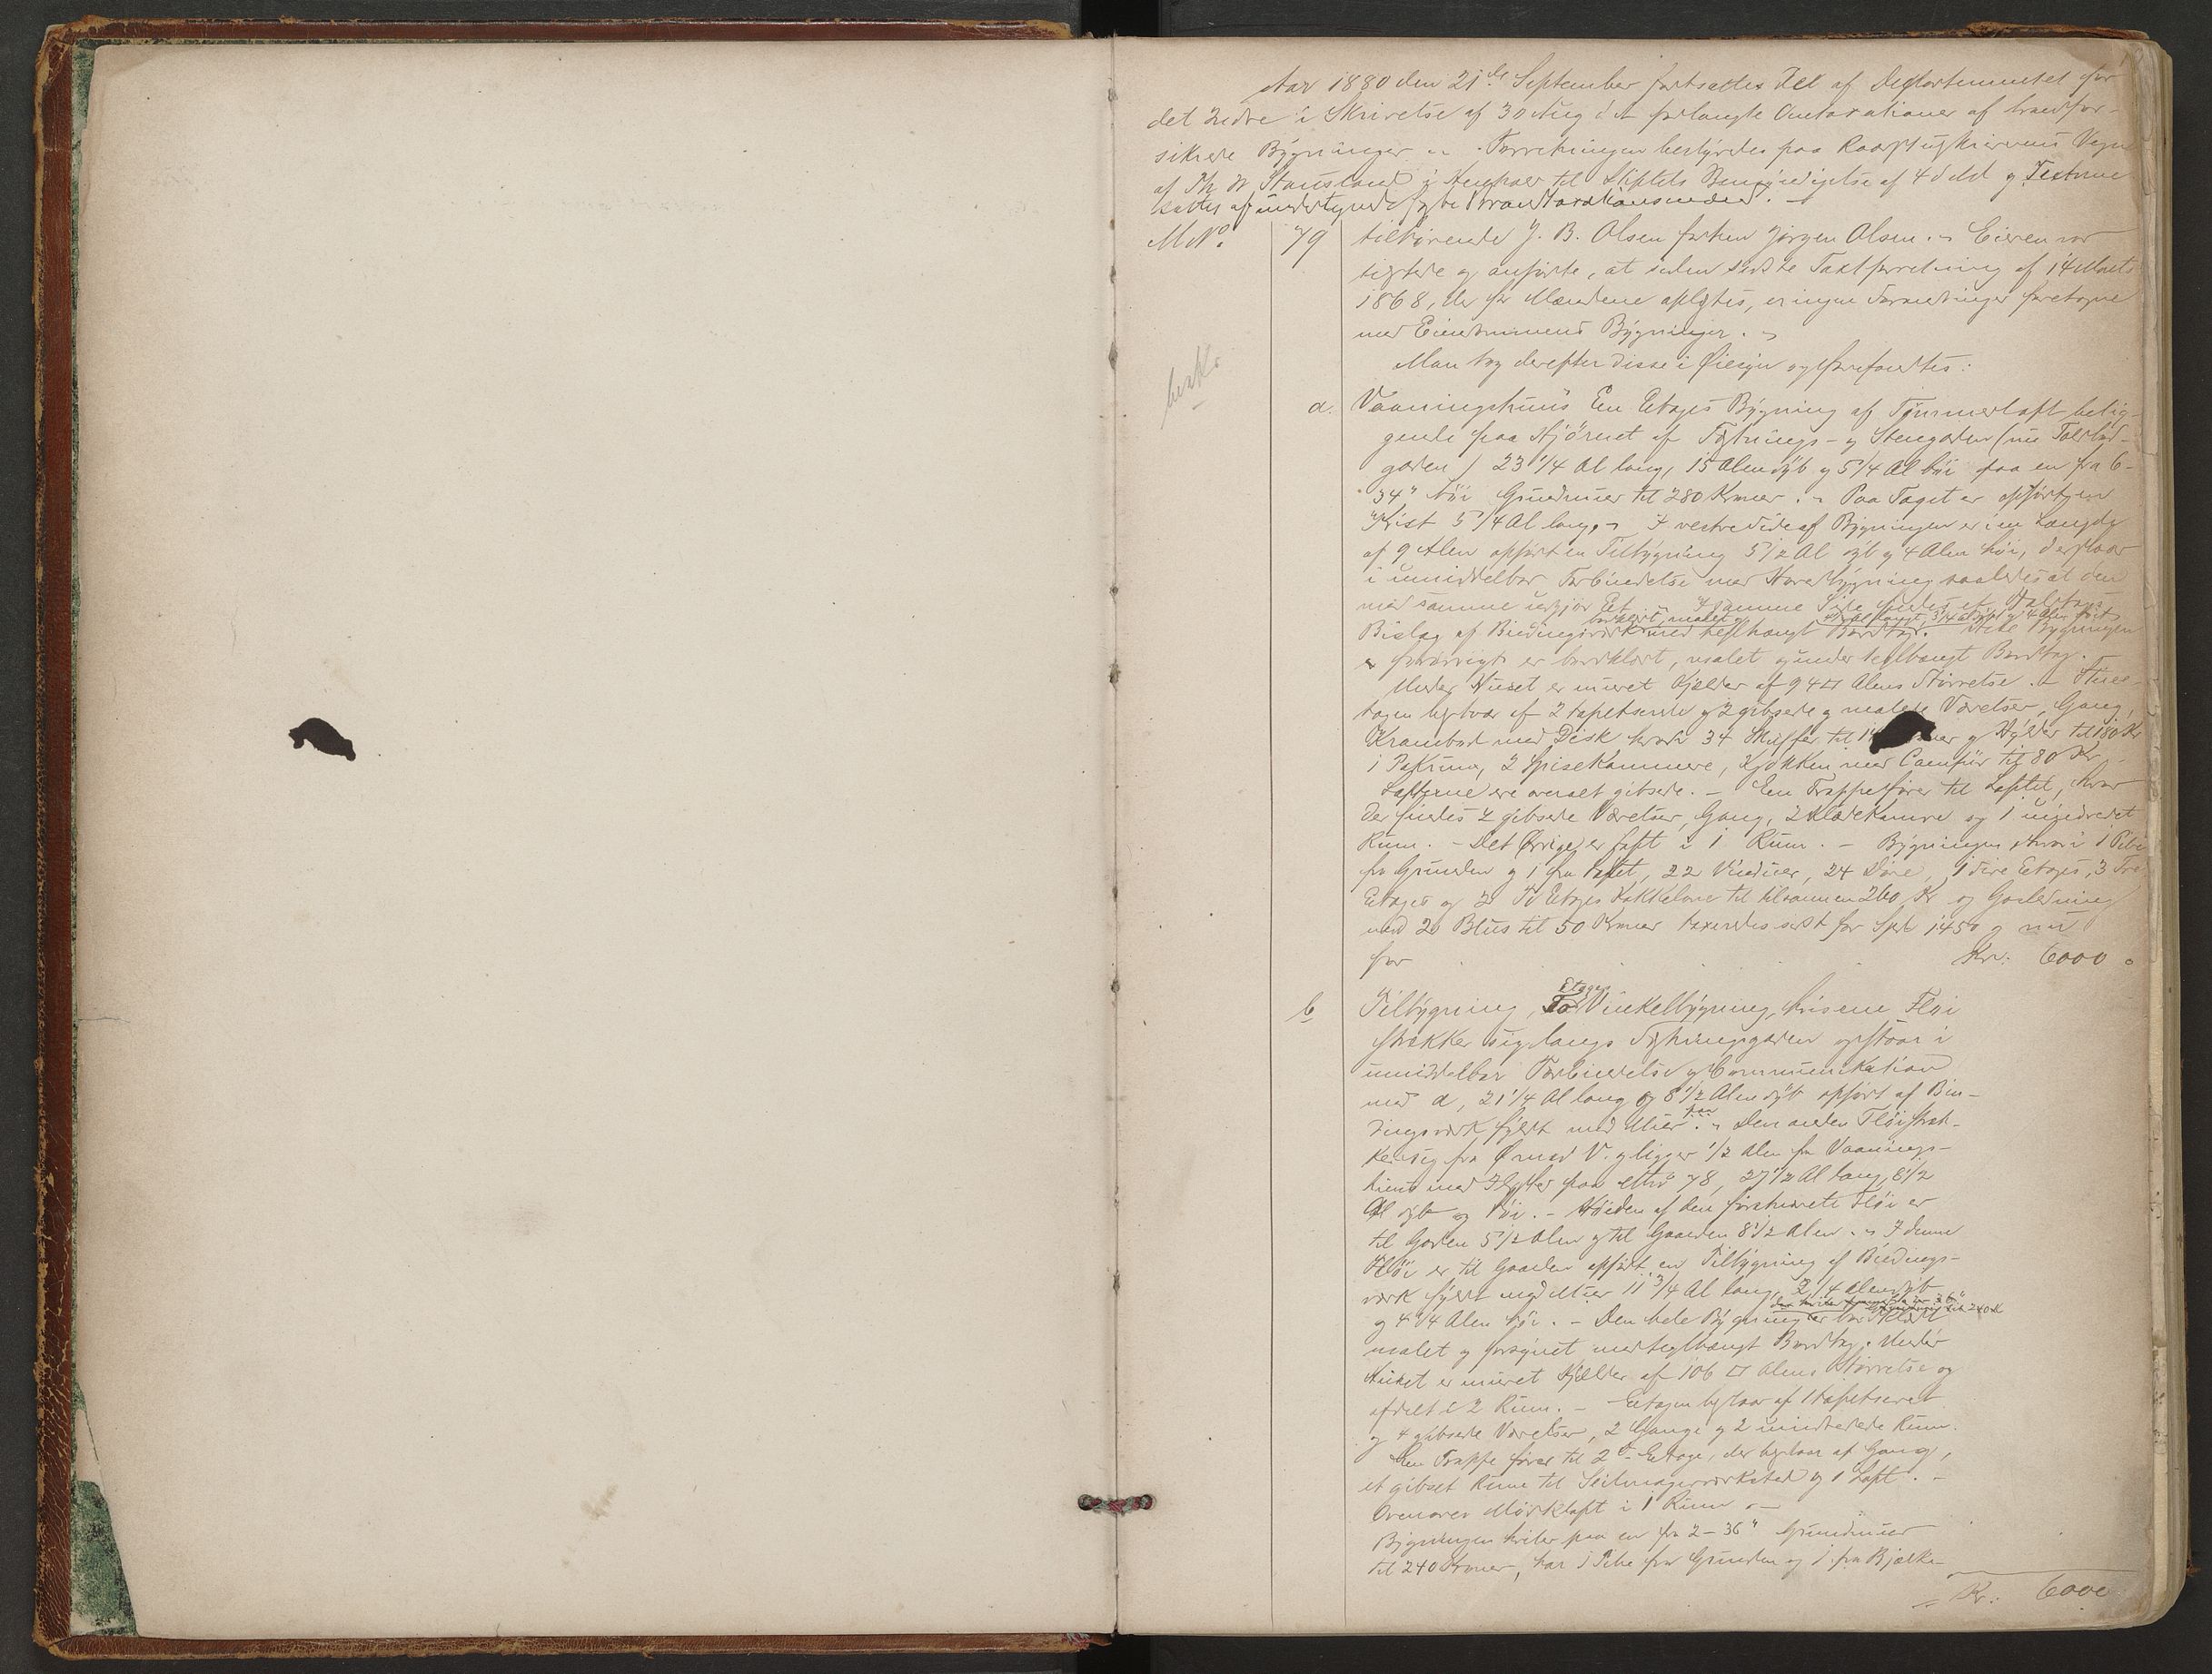 Aar 1880 den 21de September fortsattes Del af Departementet for
det Indre i Skrivelse af 30 Aug d A forlangte Omtaxationer af brandfor-
sikrede Bygninger. Forretningen bestyredes paa Vegne
af Th W Stousland i Henhold til Stiftets Bemyndigelse af 4 d Md og Testerne
sattes af undertegnede Brandtaxationsmænd. –
M No. 79 tilhørende J. B. Olsen Jørgen Olsen. – Eieren var
og anførte, at siden sidste Taxtforretning af 14 Marts
1868, der for Mændene oplæstes, er ingen Forandringer foretagne
med Eiendommens Bygninger. –
Man tog derefter disse i Øiesyn og forefandtes:
a. Vaaningshuus En Etages Bygning af Tømmerlaft belig-
gende paa Hjørnet af Fæstnings- og Stengaden (nu Toldbod-
gaden) 23 1/4 Al lang, 15 Alen dyb og 5 1/4 Al høi paa en fra 6-
34" høi Grundmuur til 280 Kroner. – Paa Taget er opført en
Kvist 5 1/4 Al lang. – I vestre Side af Bygningen er i en Længde
af 9 Alen opført en Tilbygning 5 1/2 Al dyb og 4 Alen høi, der staar
i umiddelbar Forbindelse med Hovedbygningen saaledes at den
med samme udgjør Et. – I samme Side findes et
bordklædt, malet og
Bislag af Bindingsværk med teglhængt Bordtag. Hele Bygningen
er forøvrigt er bordklædt, malet og under teglhængt Bordtag.
Under Huset er muret Kjælder af 94 □ Alens Størrelse. – Stue-
tagen bestaar af 2 tapetserede og 2 gibsede og malede Værelser, Gang,
Krambod med Disk hvori 34 Skuffer til og Hylder til 180 Kr
1 Pakrum, 2 Spisekammere, Kjøkken med Comfur til 80 Kr. –
Lofterne ere overalt gibsede. – En Trappe fører til Loftet, hvor
der findes 2 gibsede Værelser, Gang, 2 Klædekamre og 1 uindredet
Rum. – Det Øvrige er Loft i 1 Rum. – Bygningen hvori 1 Pibe
fra Grunden og 1 fra Loftet, 22 Vinduer, 24 Døre, 1 fire Etages, 3 Tre
Etages og 2 To Etages Kakkelovne til tilsammen 260 Kr og Gasledning
med 20 Blus til 50 Kroner taxeredes sidst for Spd 1450 og nu
for Kr. 6000 0
b Tilbygning, To Etages Vinkelbygning, hvis ene Fløi
strækker sig langs Fæstningsgaden og staar i
umiddelbar Forbindelse og Communikation
med a, 21 1/4 Al lang og 8 1/2 Alen dyb opført af Bin-
dingsværk fyldt med Muur. – Den anden Fløi stræk-
ker sig fra Ø mod V. og ligger 1/2 Alen fra Vaanings-
huus med paa MNo 78, 27 1/2 Al lang, 8 1/2
Al dyb og høi. – Høiden af den førstnævnte Fløi er
til Gaden 5 1/2 Alen og til Gaarden 8 1/2 Alen. – I denne
Fløi er til Gaarden opført en Tilbygning af Bindings-
værk fyldt med Muur 11 3/4 Al lang, 2 1/4 Alen dyb
og 4 3/4 Alen høi. – Den hele Bygning er bordklædt
malet og forsynet med teglhængt Bordtag. Under
Huset er muret Kjælder af 106 □ Alens Størrelse og
afdelt i 2 Rum. – Etagen bestaar af 1 tapetseret
og 4 gibsede Værelser, 2 Gange og 2 uindredede Rum.
En Trappe fører til 2d Etage, der bestaar af Gang,
et gibset Rum til Seilmagerværksted og 1 Loft. –
Ovenover Mørkloft i 1 Rum. –
Bygningen hviler paa en fra 2–36" Grundmuur
til 240 Kroner, har 1 Pibe fra Grunden og 1 fra Bjælke-
Kr. 6000